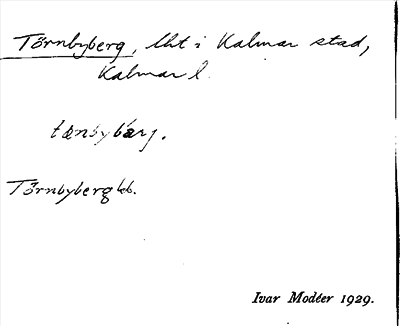 Törnbyberg, lht i Kalmar stad,
Kalmar l.
tænbybærj.
Törnbyberg
Ivar Modéer 1929.